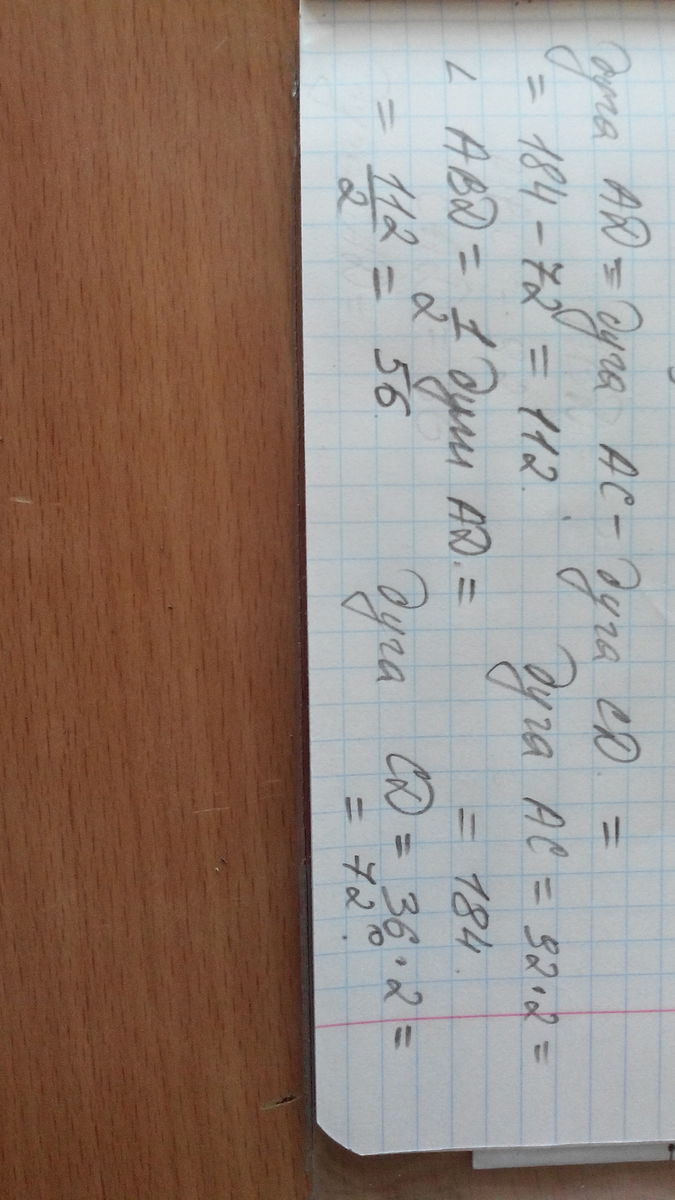 дуга AD = дуга AC - дуга CD =
= 184 - 72 = 112.
∠ ABD = 1/2 дуги AD. =
= 112/2 = 56
дуга AC = 92·2 =
= 184.
дуга CD = 36·2 =
= 72°.